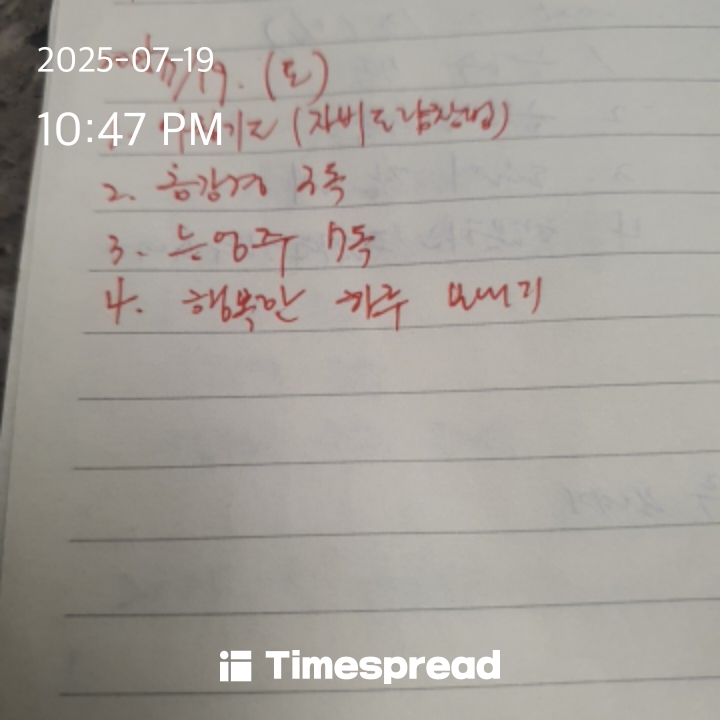 2025-07-19
7/19. (토)
10:47 PM
기도 (자비도량참법)
2. 금강경 2독
3. 능엄주 7독
4. 행복한 하루 보내기
Timespread